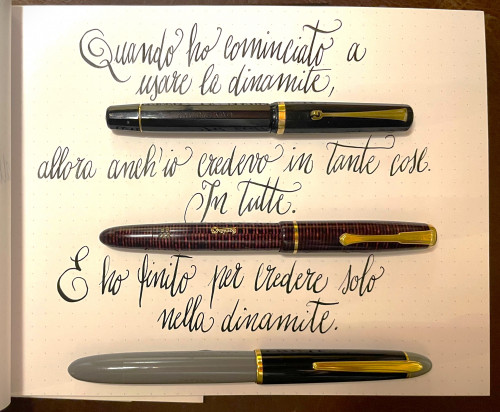 Quando ho cominciato a
usare la dinamite,
allora anch'io credevo in tante cose.
In tutte.
E ho finito per credere solo
nella dinamite.